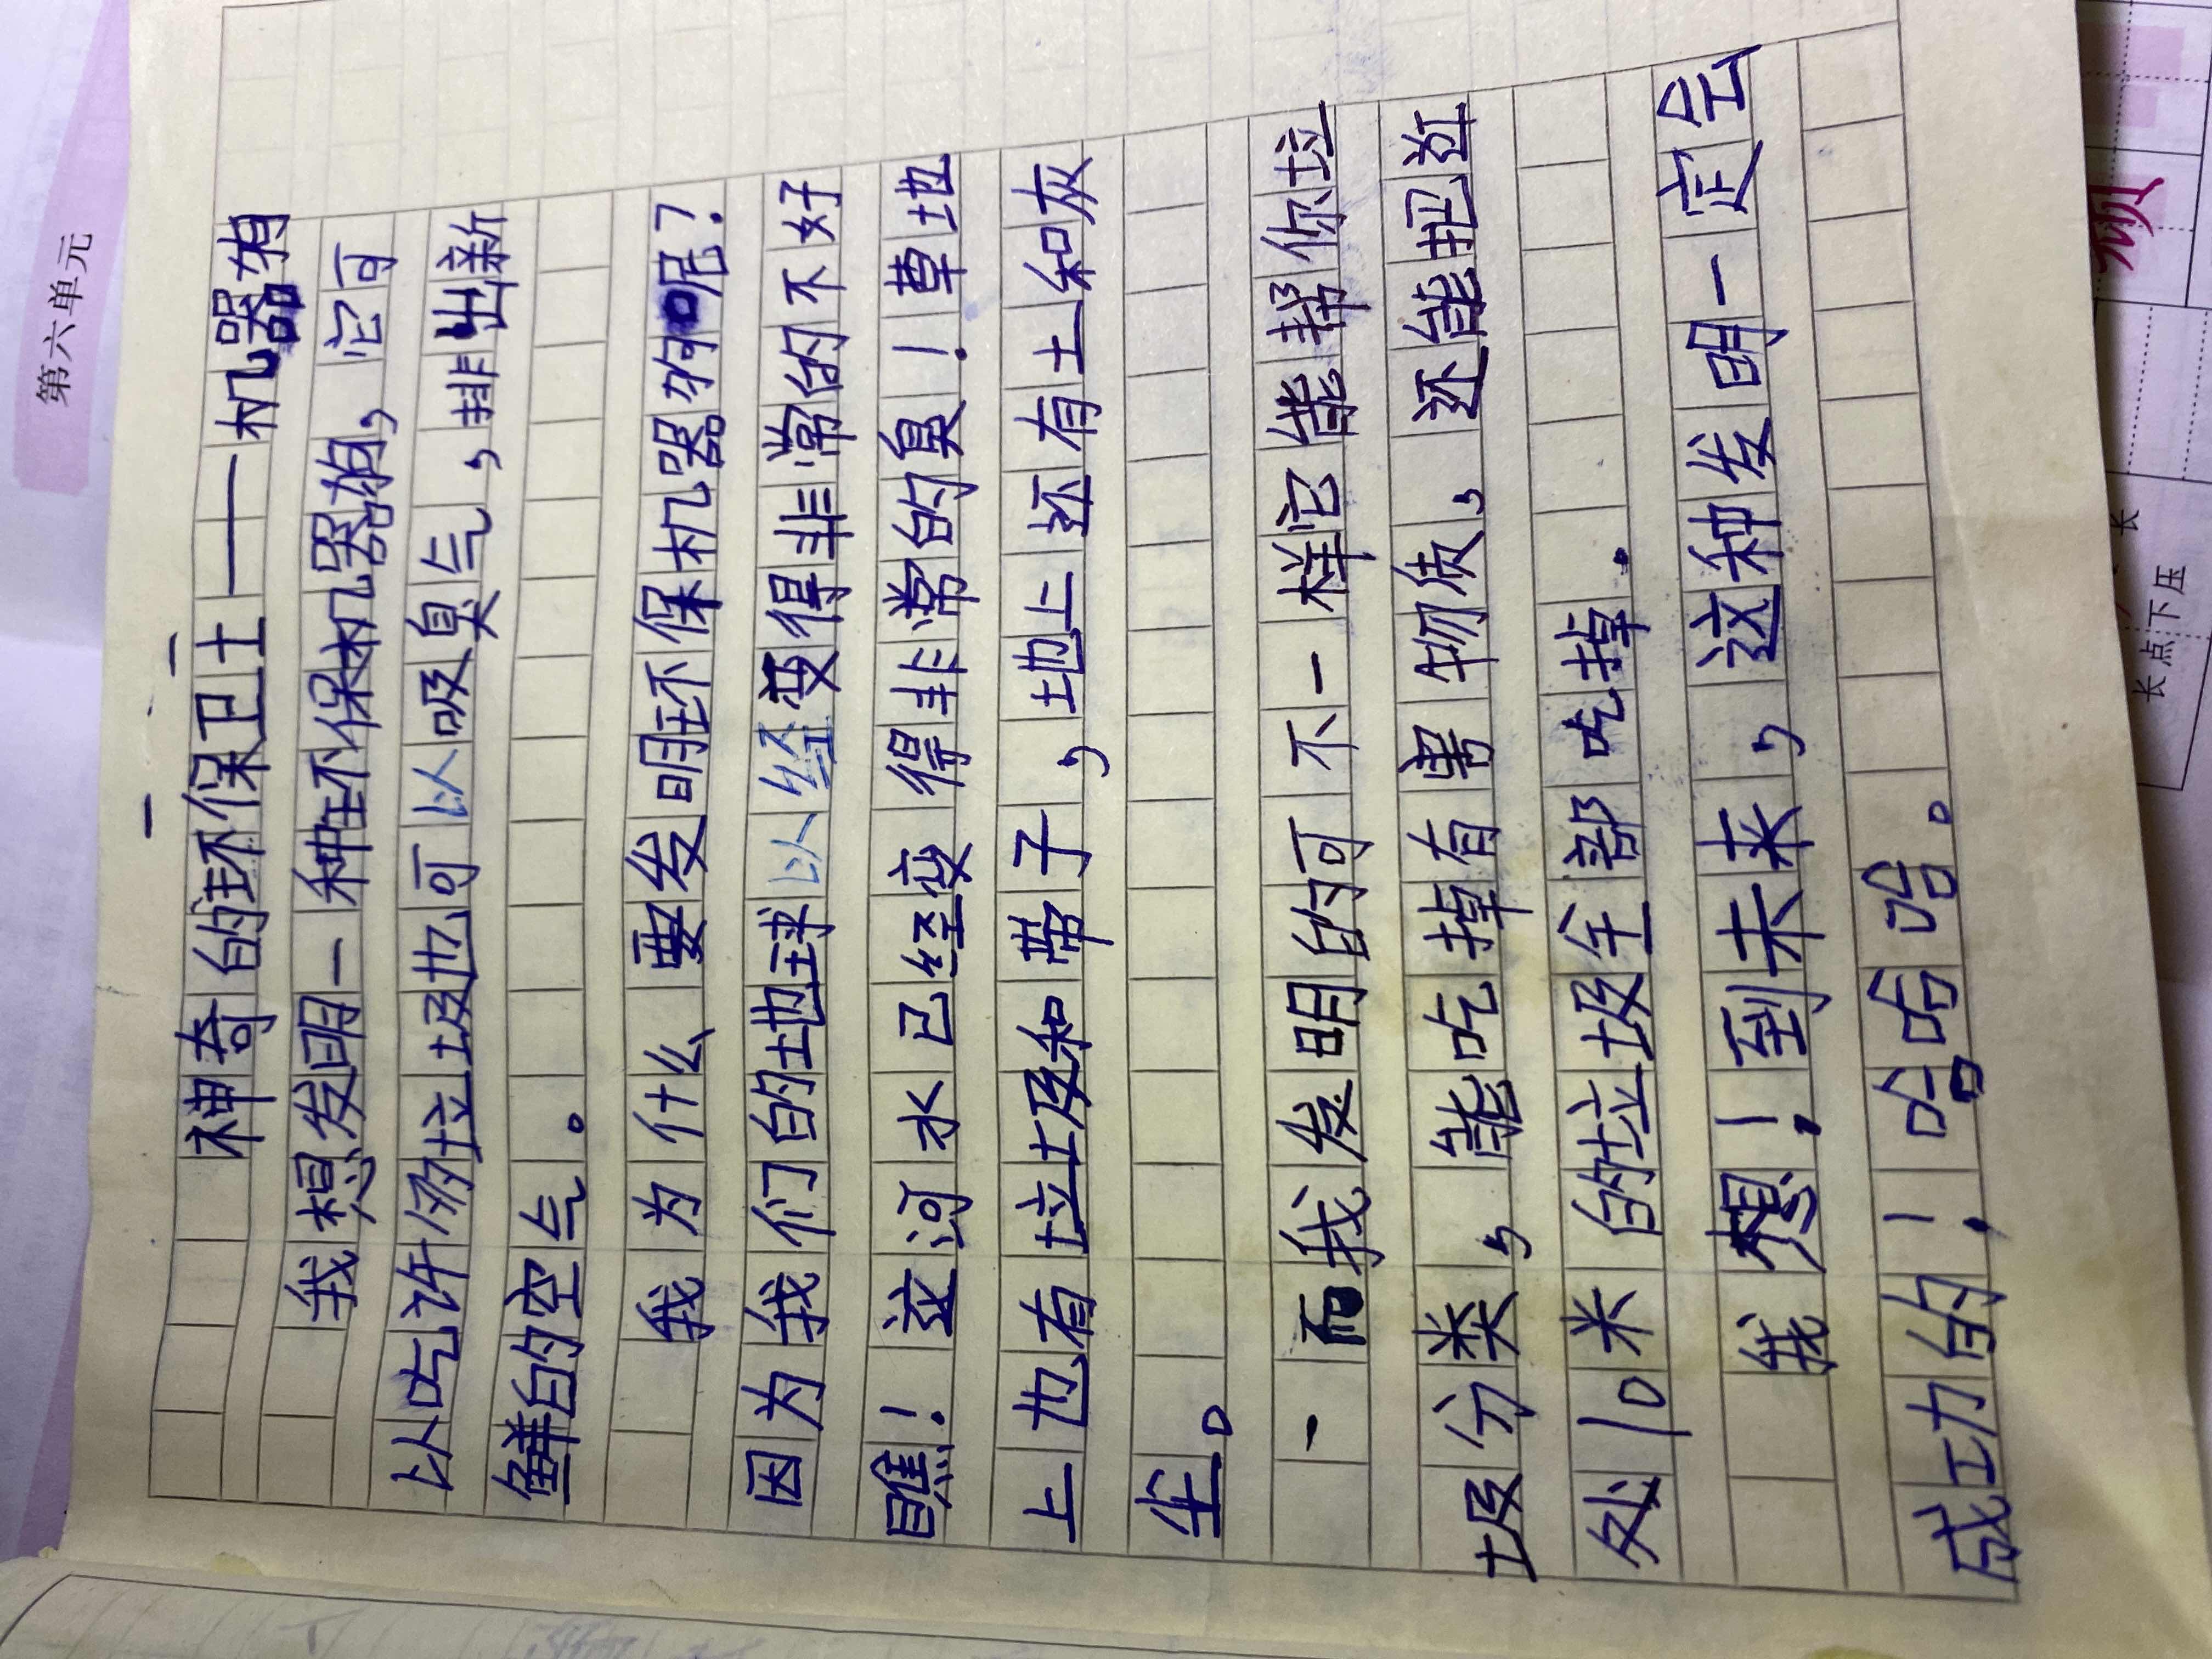 第六单元
神奇的环保卫士——机器狗
我想发明一种环保机器狗，它可
以吃许多垃圾也可以吸臭气，排出新
鲜的空气。
我为什么要发明环保机器狗呢？
因为我们的地球以经变得非常的不好
瞧！这河水已经变得非常的臭！草地
上也有垃圾和带子，地上还有土和灰
尘。
而我发明的可不一样它能帮你垃
圾分类，能吃掉有害物质，还能把这
处10米的垃圾全部吃掉.
我想！到未来，这种发明一定会
成功的！哈哈哈。
长点下压
长